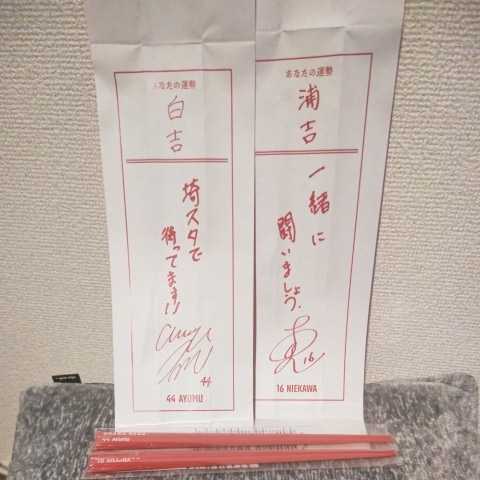 あなたの運勢
白吉
埼スタで
待ってます!!
44
44 AYUMU
あなたの運勢
浦吉
一緒に
闘いましょう.
16
16 NIEKAWA
44 AYUMU